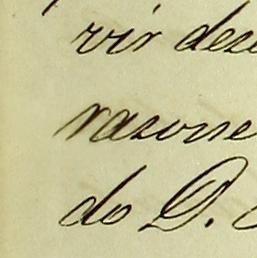 vir dese
rasone
do D.